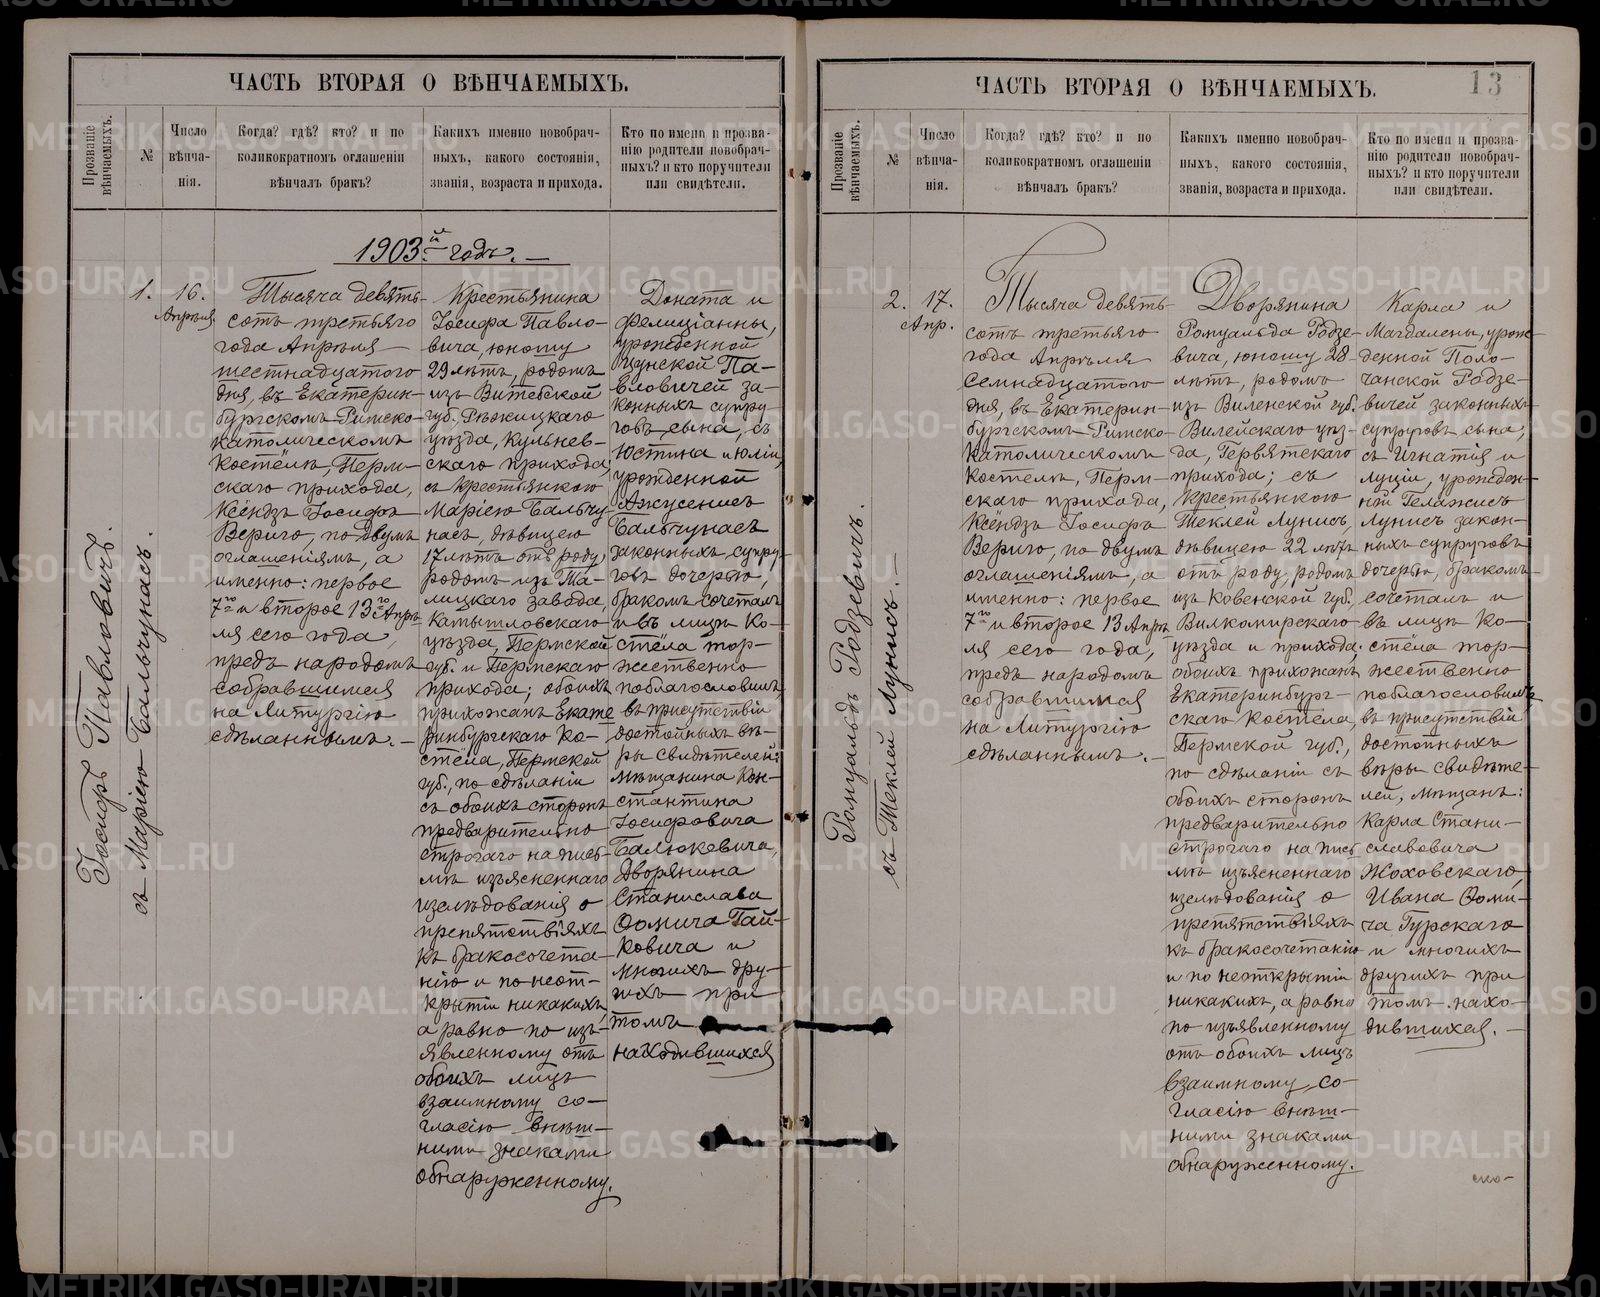 ЧАСТЬ ВТОРАЯ О ВѢНЧАЕМЫХЪ.
Прозваніе
вѣнчаемыхъ.
№
Число
вѣнча-
нія.
Когда? гдѣ? кто? и по
коликократномъ оглашеніи
вѣнчалъ бракъ?
Какихъ именно новобрач-
ныхъ, какого состоянія,
званія, возраста и прихода.
Кто по имени и прозва-
нію родители новобрач-
ныхъ? и кто поручители
или свидѣтели.
1903й годъ.
Іосифъ Павловичъ
съ Маріею Бальчунасъ.
1.
16.
Апрѣля
Тысяча девять-
сотъ третьяго
года Апрѣля
шестнадцатого
дня, въ Екатерин-
бургскомъ Римско-
католическомъ
Костёлѣ, Перм-
скаго прихода,
Ксёндзъ Іосифъ
Вериго, по двумъ
оглашеніямъ, а
именно: первое
7го и второе 13го Апрѣ-
ля сего года
предъ народомъ
собравшимся
на Литургію
сдѣланнымъ.
Крестьянина
Іосифа Павло-
вича, юношу
29 лѣтъ, родомъ
изъ Витебской
губ. Рѣжицкаго
уѣзда, Кульнев-
скаго прихода;
съ крестьянкою
Маріею Бальчу-
насъ, дѣвицею
17 лѣтъ отъ роду
родомъ изъ Та-
лицкаго завода,
Камышловскаго
уѣзда, Пермской
губ. и Пермскаго
прихода; обоихъ
прихожанъ Екате
ринбургскаго Ко-
стёла, Пермской
губ., по сдѣланіи
съ обоихъ сторонъ
предварительно
строгаго на пись-
мѣ изъясненнаго
изслѣдованія о
препятствіяхъ
къ бракосочета-
нію и по неот-
крытіи никакихъ,
а равно по изъ-
явленному отъ
обоихъ лицъ
взаимному со-
гласію внѣш-
ними знаками
обнаруженному.
Доната и
Фелиціанны,
урожденной
Пунской Па-
вловичей за-
конныхъ супру-
говъ сына, съ
Юстина и Юліи,
урожденной
Анжусенисъ
Бальчунасъ
законныхъ супру-
говъ дочерью,
бракомъ сочеталъ
и въ лицѣ Ко-
стёла тор-
жественно
поблагословилъ
въ присутствіи
достойныхъ вѣ-
ры свидѣтелей:
мѣщанина Кон-
стантина
Іосифовича
Балюкевича,
Дворянина
Станислава
Ѳомича Гай-
ковича и
многихъ дру-
гихъ при
томъ
находившихся
ЧАСТЬ ВТОРАЯ О ВѢНЧАЕМЫХЪ.
13
Прозваніе
вѣнчаемыхъ.
№
Число
вѣнча-
нія.
Когда? гдѣ? кто? и по
коликократномъ оглашеніи
вѣнчалъ бракъ?
Какихъ именно новобрач-
ныхъ, какого состоянія,
званія, возраста и прихода.
Кто по имени и прозва-
нію родители новобрач-
ныхъ? и кто поручители
или свидѣтели.
Ромуальдъ Родзевичъ.
съ Теклей Лунисъ.
2.
17.
Апр.
Тысяча девять-
сотъ третьяго
года Апрѣля
Семнадцатого
дня, въ Екатерин-
бургскомъ Римско-
Католическомъ
Костелѣ, Перм-
скаго прихода,
Ксёндзъ Іосифъ
Вериго, по двумъ
оглашеніямъ, а
именно: первое
7го и второе 13 Апрѣ
ля сего года,
предъ народомъ
собравшимся
на Литургію
сдѣланнымъ.
Дворянина
Ромуальда Родзе-
вича, юношу 28
лѣтъ, родомъ
изъ Виленской губ.
Вилейскаго уѣз-
да, Гервятскаго
прихода; съ
Крестьянкою
Теклей Лунисъ,
дѣвицею 22 лѣтъ
отъ роду, родомъ
изъ Ковенской губ.,
Вилкомирскаго
уѣзда и прихода;
обоихъ прихожанъ
Екатеринбург-
скаго Костела,
Пермской губ.,
по сдѣланіи съ
обоихъ сторонъ
предварительно
строгаго на пись
мѣ изъясненнаго
изслѣдованія о
препятствіяхъ
къ бракосочетанію
и по неоткрытіи
никакихъ, а равно
по изъявленному
отъ обоихъ лицъ
взаимному со-
гласію внѣш-
ними знаками
обнаруженному.
Карла и
Магдалены, урож-
денной Поло-
чанской Родзе-
вичей законныхъ
супруговъ сына,
съ Игнатія и
Луціи, урожден-
ной Гелажисъ
Лунисъ закон-
ныхъ супруговъ
дочерью, бракомъ
сочеталъ и
въ лицѣ Ко-
стёла тор-
жественно
поблагословилъ
въ присутствіи
достойныхъ
вѣры свидѣте-
лей, мѣщанъ:
Карла Стани-
славовича
Жоховскаго,
Ивана Ѳоми-
ча Гурскаго
и многихъ
другихъ при
томъ нахо-
дившихся.
METRIKI.GASO-URAL.RU